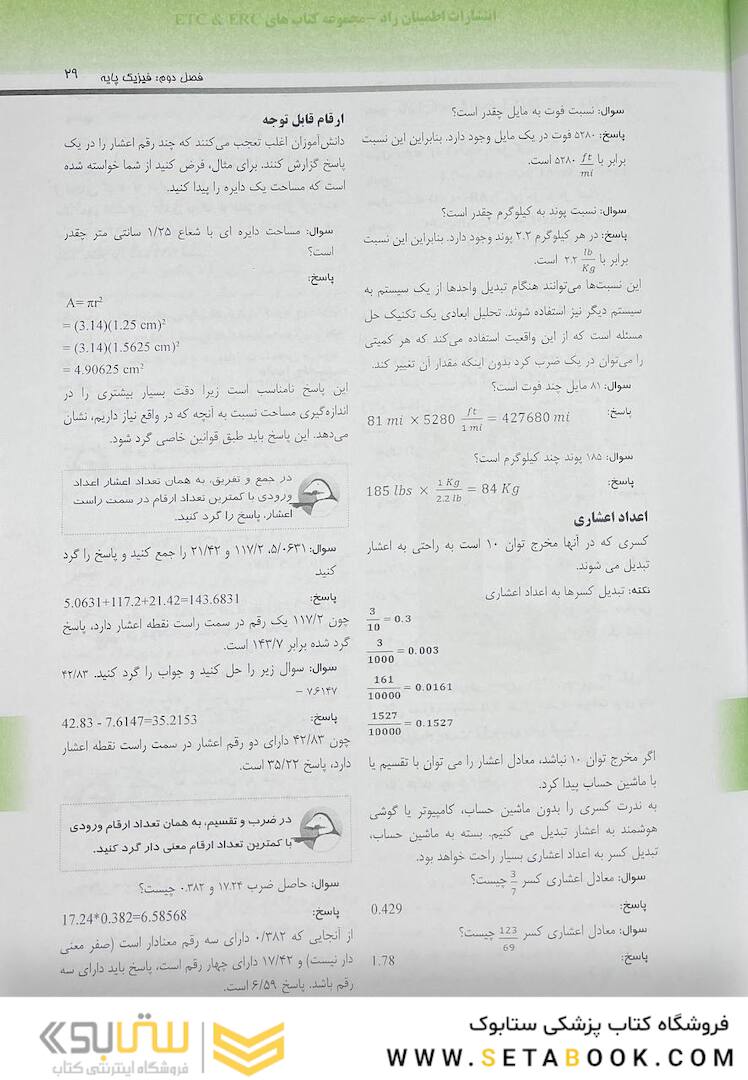 انتشارات اطمینان راد - مجموعه کتاب های ETC & ERC
فصل دوم: فیزیک پایه ۲۹
سوال: نسبت فوت به مایل چقدر است؟
پاسخ: ۵۲۸۰ فوت در یک مایل وجود دارد. بنابراین این نسبت
برابر با ft/mi ۵۲۸۰ است.
سوال: نسبت پوند به کیلوگرم چقدر است؟
پاسخ: در هر کیلوگرم ۲.۲ پوند وجود دارد. بنابراین این نسبت
برابر با lb/Kg ۲.۲ است.
این نسبت‌ها می‌توانند هنگام تبدیل واحدها از یک سیستم به
سیستم دیگر نیز استفاده شوند. تحلیل ابعادی یک تکنیک حل
مسئله است که از این واقعیت استفاده می‌کند که هر کمیتی
را می‌توان در یک ضرب کرد بدون اینکه مقدار آن تغییر کند.
سوال: ۸۱ مایل چند فوت است؟
پاسخ:
81 mi × 5280 ft/1 mi = 427680 mi
سوال: ۱۸۵ پوند چند کیلوگرم است؟
پاسخ:
185 lbs × 1 Kg/2.2 lb = 84 Kg
اعداد اعشاری
کسری که در آنها مخرج توان ۱۰ است به راحتی به اعشار
تبدیل می شوند.
نکته: تبدیل کسرها به اعداد اعشاری
3/10 = 0.3
3/1000 = 0.003
161/10000 = 0.0161
1527/10000 = 0.1527
اگر مخرج توان ۱۰ نباشد، معادل اعشار را می توان با تقسیم یا
با ماشین حساب پیدا کرد.
به ندرت کسری را بدون ماشین حساب، کامپیوتر یا گوشی
هوشمند به اعشار تبدیل می کنیم. بسته به ماشین حساب،
تبدیل کسر به اعداد اعشاری بسیار راحت خواهد بود.
سوال: معادل اعشاری کسر 3/7 چیست؟
پاسخ:
0.429
سوال: معادل اعشاری کسر 123/69 چیست؟
پاسخ:
1.78
ارقام قابل توجه
دانش‌آموزان اغلب تعجب می‌کنند که چند رقم اعشار را در یک
پاسخ گزارش کنند. برای مثال، فرض کنید از شما خواسته شده
است که مساحت یک دایره را پیدا کنید.
سوال: مساحت دایره ای با شعاع ۱/۲۵ سانتی متر چقدر
است؟
پاسخ:
A= πr²
= (3.14)(1.25 cm)²
= (3.14)(1.5625 cm)²
= 4.90625 cm²
این پاسخ نامناسب است زیرا دقت بسیار بیشتری را در
اندازه‌گیری مساحت نسبت به آنچه که در واقع نیاز داریم، نشان
می‌دهد. این پاسخ باید طبق قوانین خاصی گرد شود.
در جمع و تفریق، به همان تعداد اعشار اعداد
ورودی با کمترین تعداد ارقام در سمت راست
اعشار، پاسخ را گرد کنید.
سوال: ۵/۰۶۳۱، ۱۱۷/۲ و ۲۱/۴۲ را جمع کنید و پاسخ را گرد
کنید
پاسخ:
5.0631+117.2+21.42=143.6831
چون ۱۱۷/۲ یک رقم در سمت راست نقطه اعشار دارد، پاسخ
گرد شده برابر ۱۴۳/۷ است.
سوال: سوال زیر را حل کنید و جواب را گرد کنید. ۴۲/۸۳
– ۷.۶۱۴۷
پاسخ:
42.83 - 7.6147=35.2153
چون ۴۲/۸۳ دارای دو رقم اعشار در سمت راست نقطه اعشار
دارد، پاسخ ۳۵/۲۲ است.
در ضرب و تقسیم، به همان تعداد ارقام ورودی
با کمترین تعداد ارقام معنی دار گرد کنید.
سوال: حاصل ضرب ۱۷.۲۴ و ۰.۳۸۲ چیست؟
پاسخ:
17.24*0.382=6.58568
از آنجایی که ۰/۳۸۲ دارای سه رقم معنادار است (صفر معنی
دار نیست) و ۱۷/۴۲ دارای چهار رقم است، پاسخ باید دارای سه
رقم باشد. پاسخ ۶/۵۹ است.
فروشگاه کتاب پزشکی ستابوک
WWW.SETABOOK.COM
ستابوک
فروشگاه اینترنتی کتاب